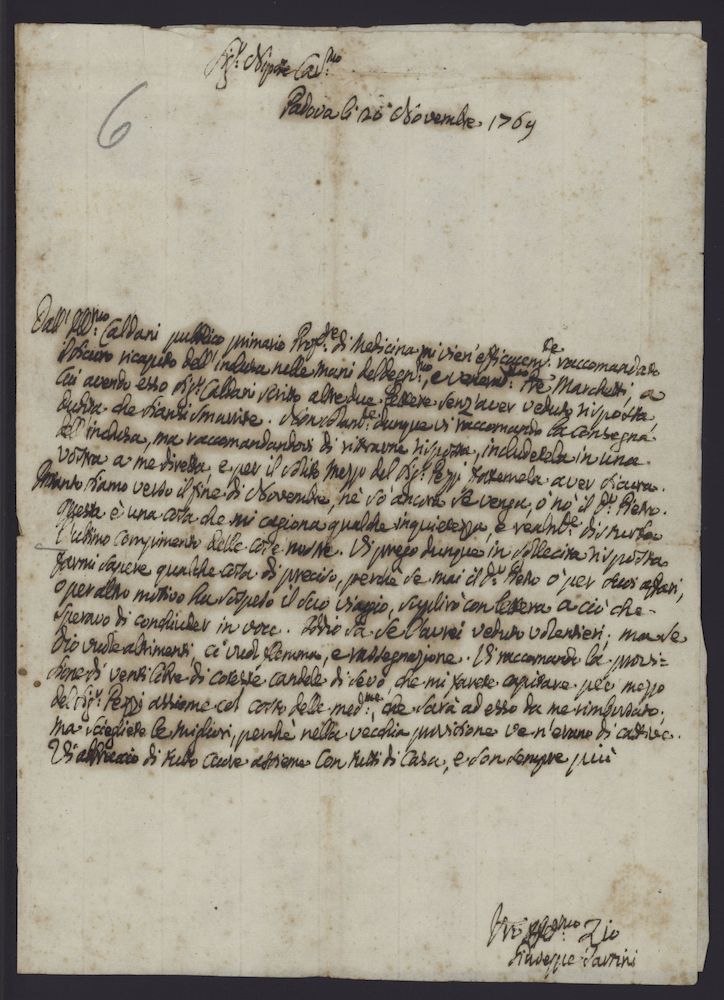 Sig.r Nipote Car.mo
Padova li 20 Novembre 1769
6
Dall' Ill.mo Caldani publico primario Prof.re di Medicina mi vien' efficacem.te raccomandato
ricapito dell' inclusa nelle mani del Marchetti, a
cui avendo esso Sig.r Caldani scritto altre due lettere senz' aver veduto risposta
dubita che siansi smarrite. Non solam.te dunque vi raccomando la consegna
dell' inclusa, ma raccomandandovi di ritrarne risposta, includetela in una
vostra a me diretta, e per il solito mezzo del Sig.r Pezzi fatemela aver sicura.
siamo verso il fine di Novembre, nè so ancora se venga, ò nò il S.r Pietro.
Questa è una cosa che mi cagiona qualche inquietezza, e disturba
l'ultimo compimento delle cose nostre. Vi prego dunque in sollecita risposta
farmi sapere qualche cosa di preciso, perchè se mai il S.r Pietro ò per suoi affari,
ò per altro motivo ha sospeso il suo viaggio, suplirò con lettera a ciò che
speravo di conchiuder in voce. Iddio sà se l'avrei veduto volentieri; ma se
Dio vuole altrimenti, ci vuol flemma, e rassegnazione. Vi raccomando la provi=
sione di venti libre di coteste candele di sevo, che mi farete capitare per mezzo
del Sig.r Pezzi assieme col costo delle med.me, che sarà ad esso da me rimborsato;
ma scegliete le migliori, perchè nella vecchia provisione ve n'erano di cattive.
Vi abbraccio di tutto cuore assieme con tutti di Casa, e son sempre più
Zio
Giuseppe Tartini